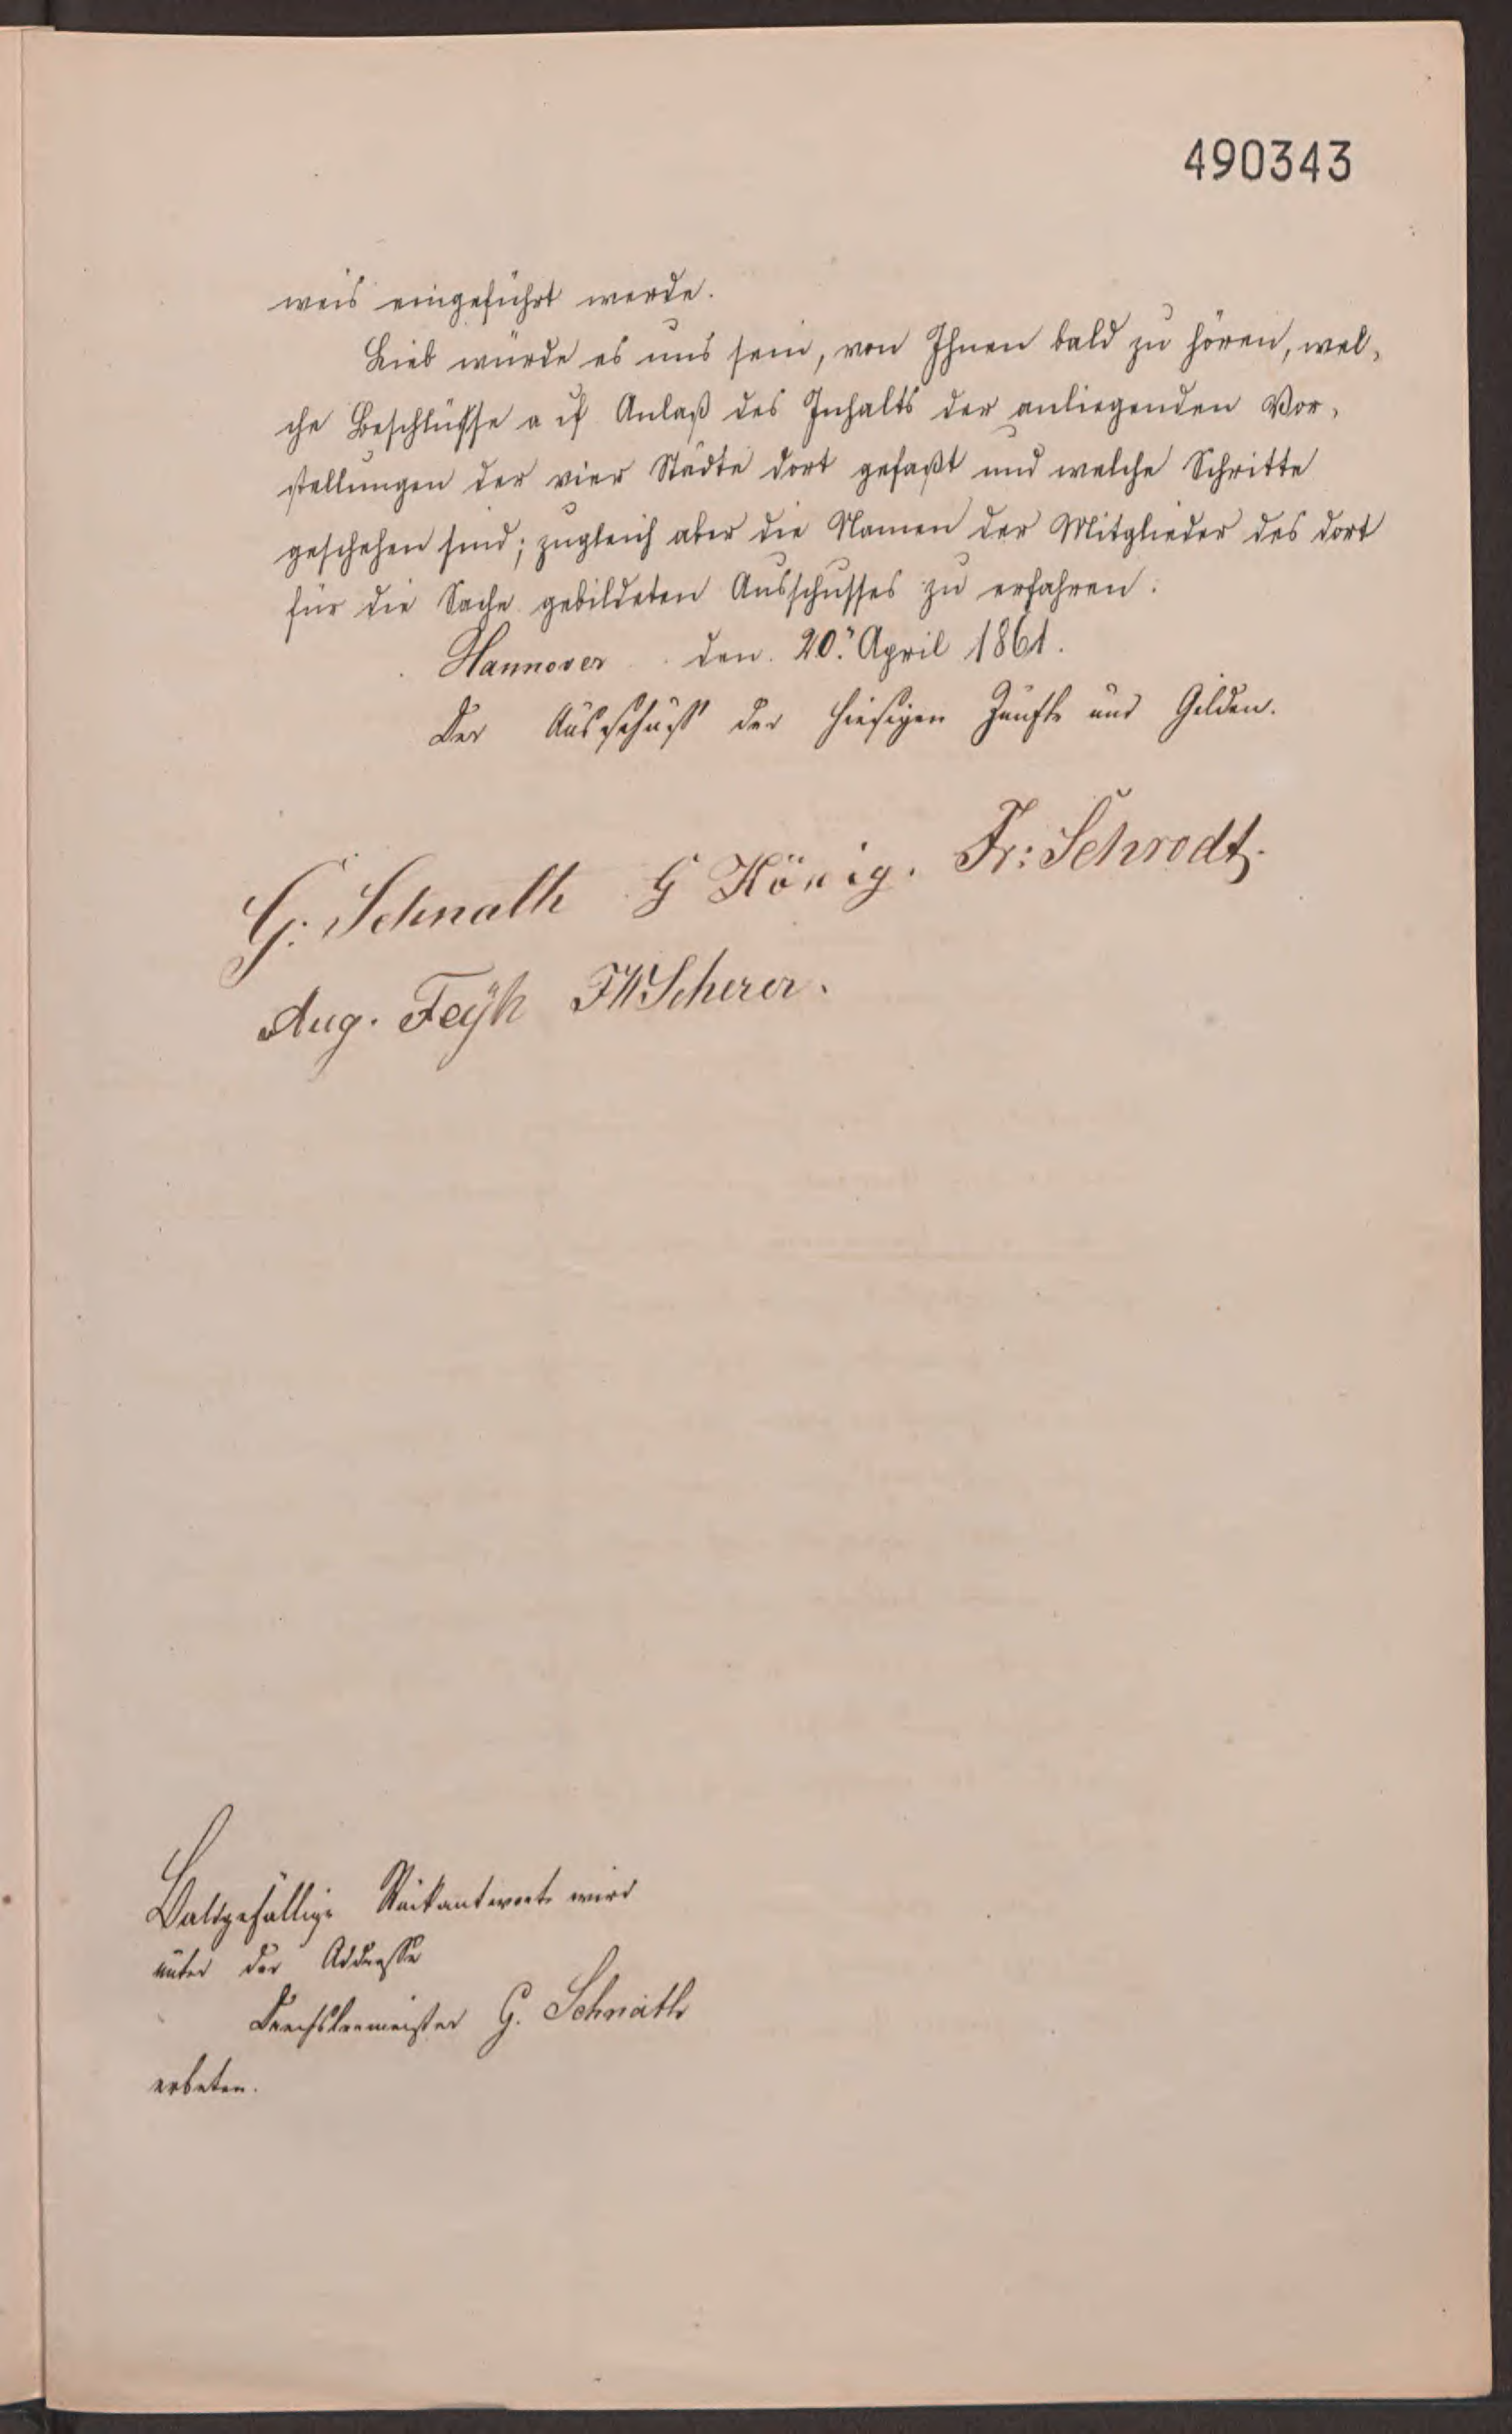 490343
weis eingeführt werde.
Lieb würde es uns sein, von Ihnen bald zu hören, wel-
che Beschlüsse auf Anlaß des Inhalts der anliegenden Vor-
stellungen der vier Städte dort gefaßt und welche Schritte
geschehen sind; zugleich aber die Namen der Mitglieder des dort
für die Sache gebildeten Ausschusses zu erfahren.
Hannover den 20. April 1861.
Der Ausschuß der hiesigen Zünfte und Gilden.
G. Schnath G König. Fr: Schrodt.
Aug. Feÿh FW Scherer.
Baldgefällige Rückantwort wird
unter der Addresse
Drechslermeister G. Schnath
erbeten.